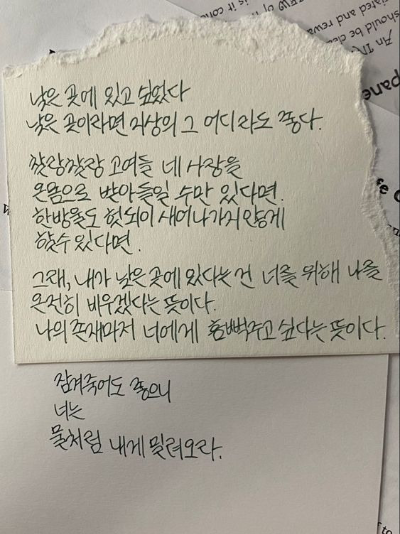 낮은 곳에 있고 싶었다
낮은 곳이라면 지상의 그 어디라도 좋다.
찰랑찰랑 고여들 네 사랑을
온몸으로 받아들일 수만 있다면.
한방울도 헛되이 새어나가지 않게
할수 있다면.
그래, 내가 낮은 곳에 있다는 건 너를 위해 나를
온전히 비우겠다는 뜻이다.
나의 존재마저 너에게 흠뻑주고 싶다는 뜻이다.
잠겨죽어도 좋으니
너는
물처럼 내게 밀려오라.